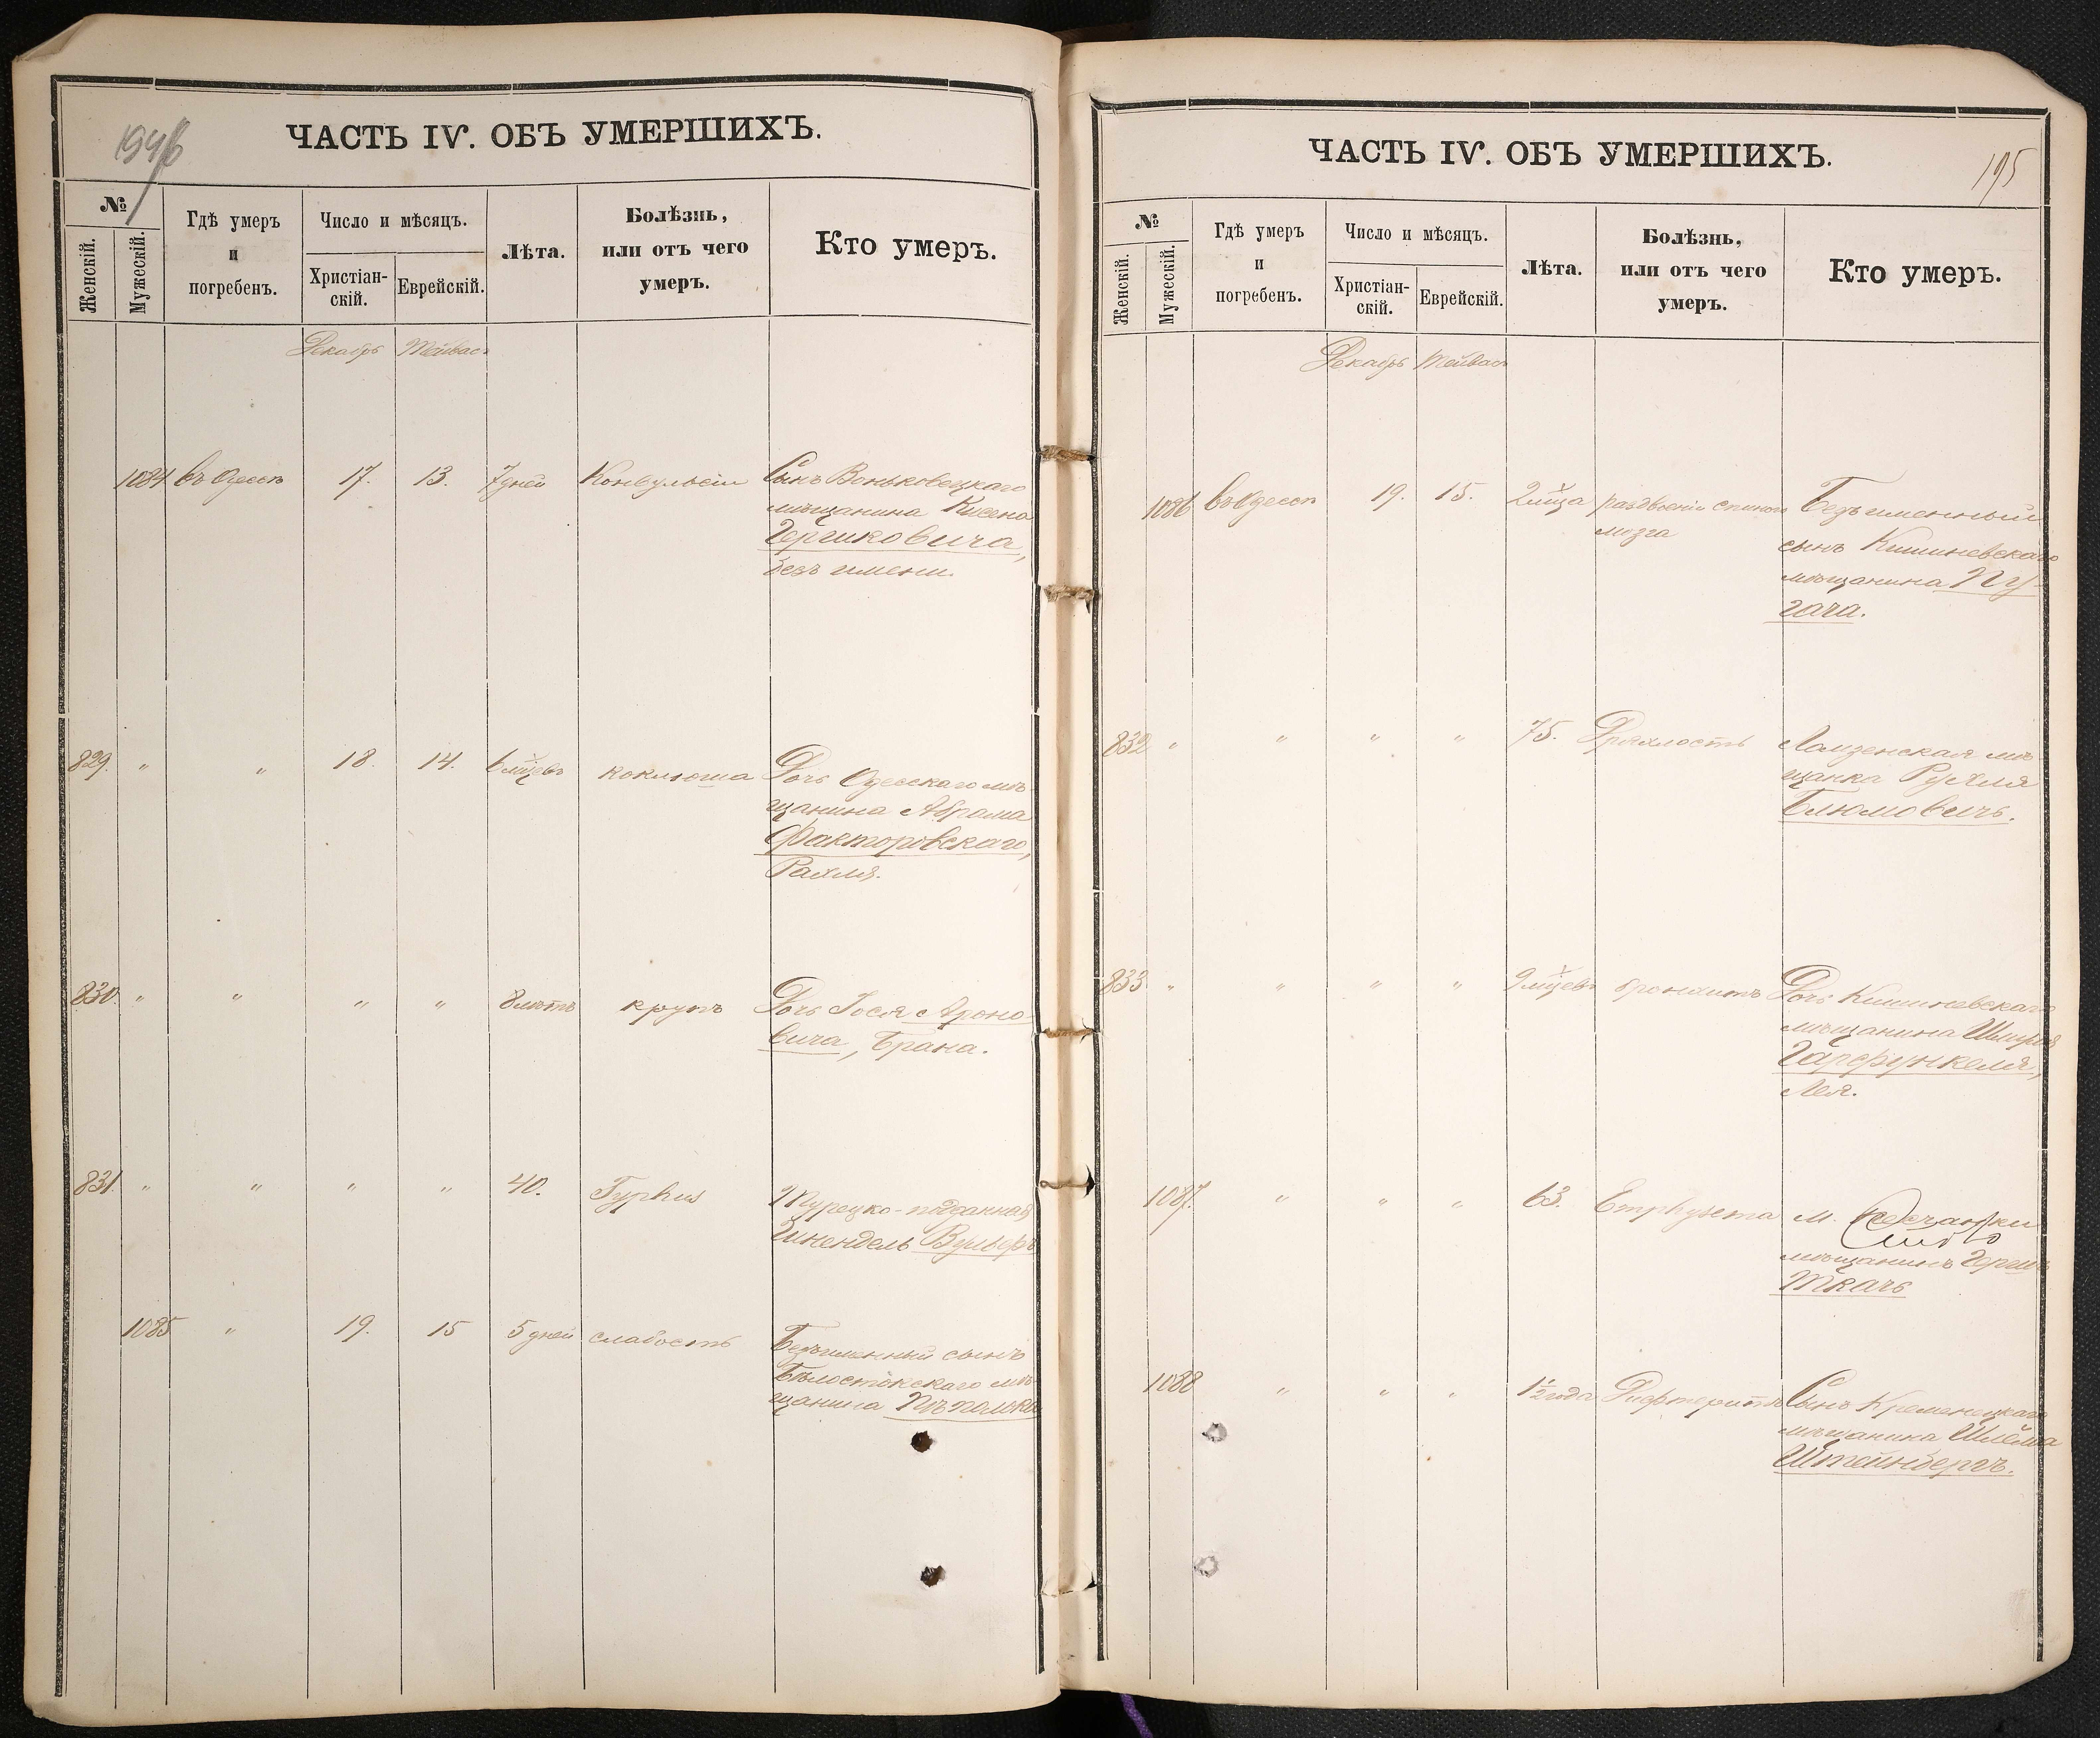 1946
ЧАСТЬ IV. ОБЪ УМЕРШИХЪ.
№
Женскій.
Мужескій.
Гдѣ умеръ
и
погребенъ.
Число и мѣсяцъ.
Христіан-
скій.
Еврейскій.
Лѣта.
Болѣзнь,
или отъ чего
умеръ.
Кто умеръ.
Декабрь Тейвасъ
1084 въ Одессѣ 17. 13. 7 дней Конвульсіи Сынъ Воньковецкаго
мѣщанина Кисена
Гершковича,
безъ имени.
829. " " 18. 14. 6 мѣцевъ коклюша Дочь Одесскаго мѣ-
щанина Абрама
Факторовскаго,
Рахля.
830. " " " " 8 лѣтъ крупъ Дочь Іося Ароно-
вича, Брана.
831. " " " " 40. Typhus Турецко-подданная
Шкендель Вульфъ
1085 " 19. 15 5 дней слабость Безъименный сынъ
Бѣлостокскаго мѣ-
щанина
ЧАСТЬ IV. ОБЪ УМЕРШИХЪ.
195
№
Женскій.
Мужескій.
Гдѣ умеръ
и
погребенъ.
Число и мѣсяцъ.
Христіан-
скій.
Еврейскій.
Лѣта.
Болѣзнь,
или отъ чего
умеръ.
Кто умеръ.
Декабрь Тейвасъ
1086 въ Одессѣ 19. 15. 2 мѣца раздвоеніи спинного Безъименный
мозга
сынъ Кишиневскаго
мѣщанина Пу-
гача.
832 " " " " 75. Дряхлость Ломзенская мѣ-
щанка Рухля
Блюмовичъ.
833 " " " " 9 мѣцевъ бронхитъ Дочь Кишиневскаго
мѣщанина Шмуля
Гарфункеля,
Лея.
1087. " " " 63. Emphysema м.
мѣщанинъ Гершъ
Ткачъ
1088 " " " 1½ года Дифтеритъ Сынъ Кременецкаго
мѣщанина Шлёма
Штейнбергъ.